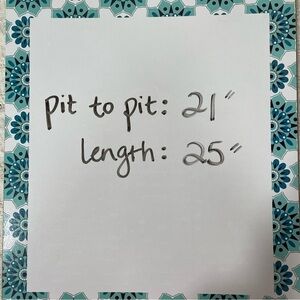 pit to pit: 21"
length: 25"